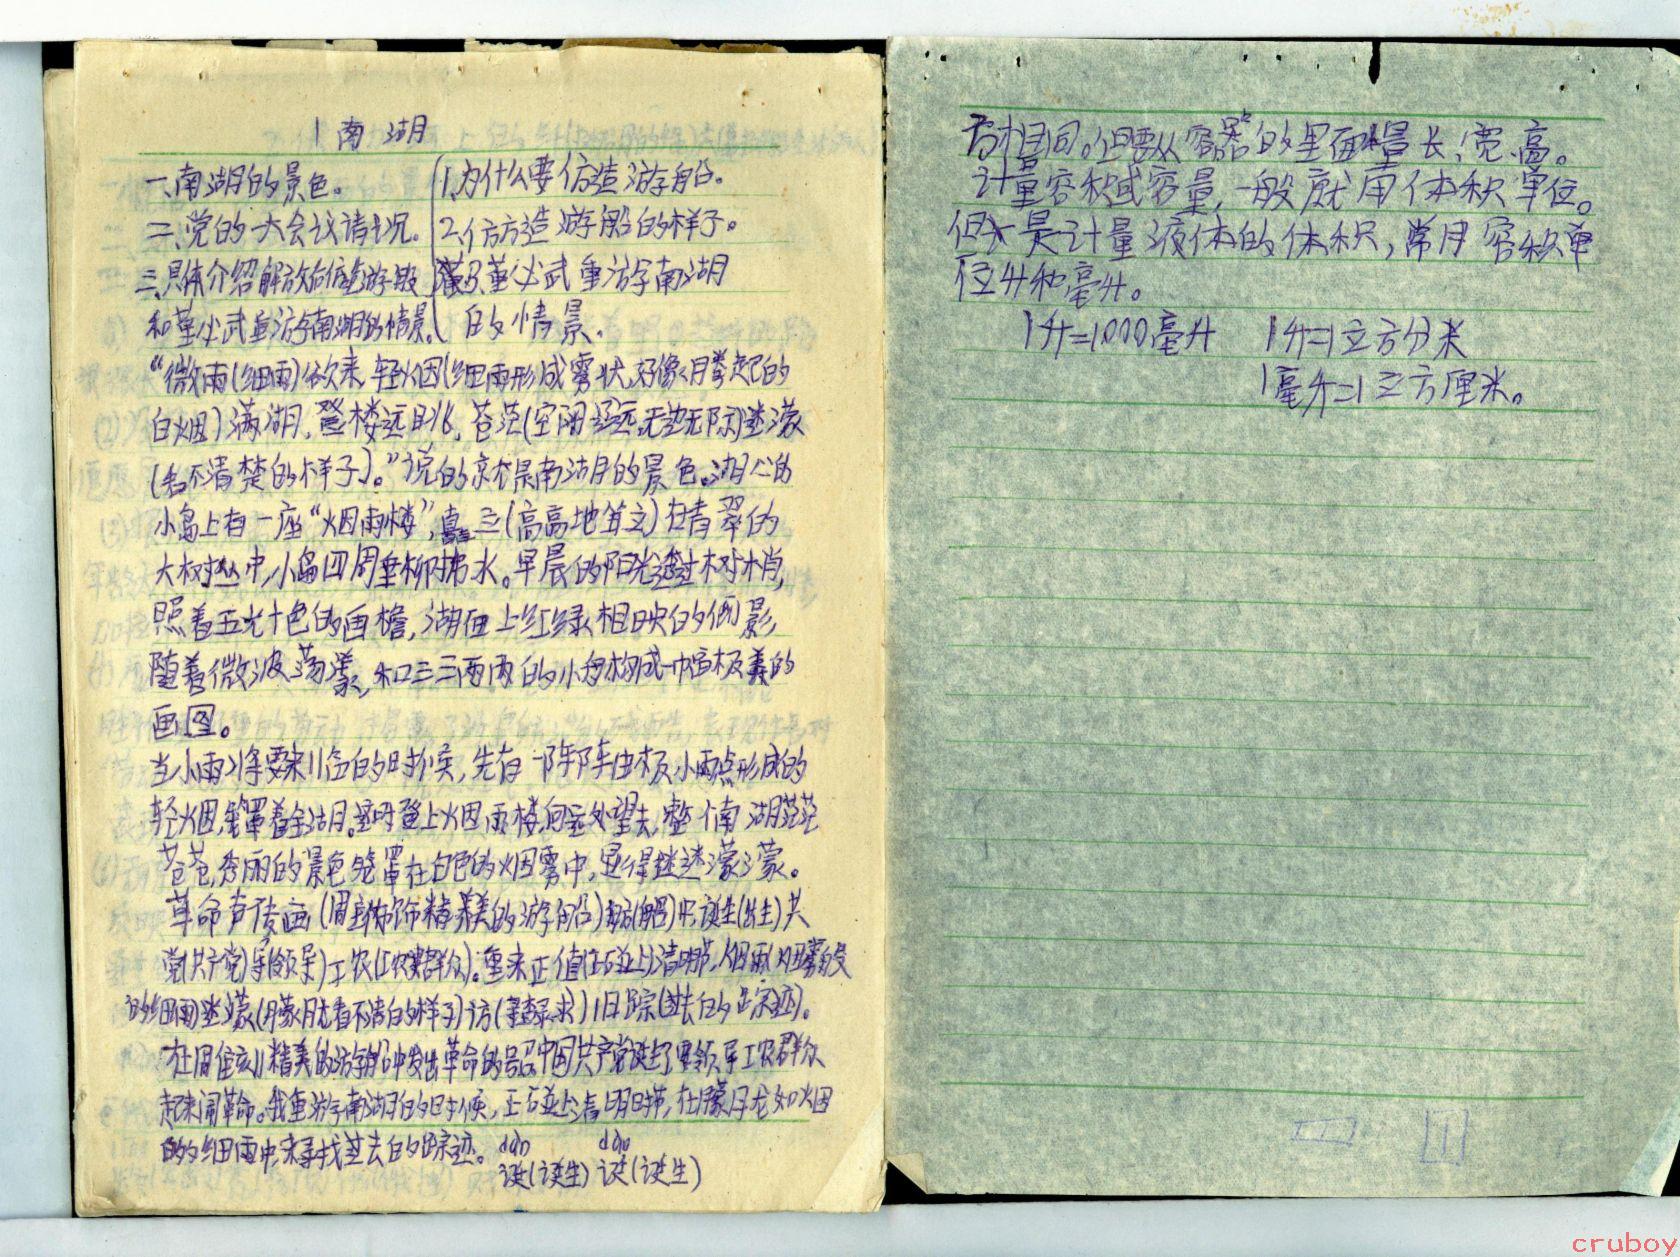 1 南湖
一、南湖的景色。
二、党的一大会议请况。
三、具体介绍解放后仿造游船
和董必武重游南湖的情景。
1、为什么要仿造游船。
2、仿造游船的样子。
3、董必武重游南湖
的情景。
“微雨(细雨)欲来,轻烟(细雨形成雾状,好像 起的
白烟)满湖,登楼远眺,苍茫(空阔辽远,无边无际)迷濛
(看不清楚的样子)。”说的就是南湖的景色。湖心的
小岛上有一座“烟雨楼”,矗立(高高地耸立)在青翠的
大树丛中,小岛四周垂柳拂水。早晨的阳光透过树梢,
照着五光十色的画檐,湖面上红绿相映的倒影,
随着微波荡漾,和三三两两的小船构成一幅极美的
画图。
当小雨将要来临的时候,先有一阵阵由极小雨点形成的
轻烟,笼罩着全湖。这时登上烟雨楼,向远处望去,整个南湖茫茫
苍苍,秀丽的景色笼罩在白色的烟雾中,显得迷迷濛濛。
革命声传画(周 饰精美的游船)舫(船)中,诞生(出生)共
党(共产党)导(领导)工农(工农群众)。重来正值(正碰上)清明节,烟雨(烟雾般
的细雨)迷濛(朦胧看不清的样子)访(寻求)旧踪(过去的踪迹)。
在 精美的游船中发出革命的号召,中国共产党诞生了,要领导工农群众
起来闹革命。我重游南湖的时候,正碰上清明时节,在朦胧如烟
的细雨中,来寻找过去的踪迹。
dàn dàn
诞(诞生) 诞(诞生)
方相同。但要从容器的里面量长、宽、高。
计量容积或容量,一般就用体积单位。
但是计量液体的体积,常用容积单
位升和毫升。
1升=1000毫升 1升=1立方分米
1毫升=1立方厘米。
cruboy